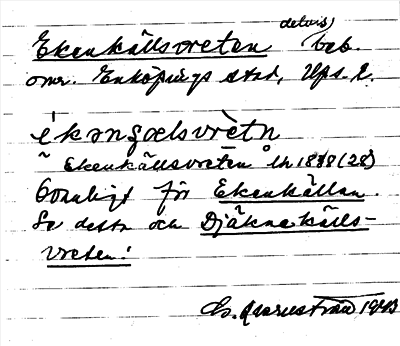 Ekenkällsvreten delvis beb.
omr. Enköpings stad, Ups. l.
ékəngælsvrètn
~ Ekenkällsvreten Lh 1878 (28)
Vanligt för Ekenkällan.
Se detta och Djäknekälls-
vreten!
1943